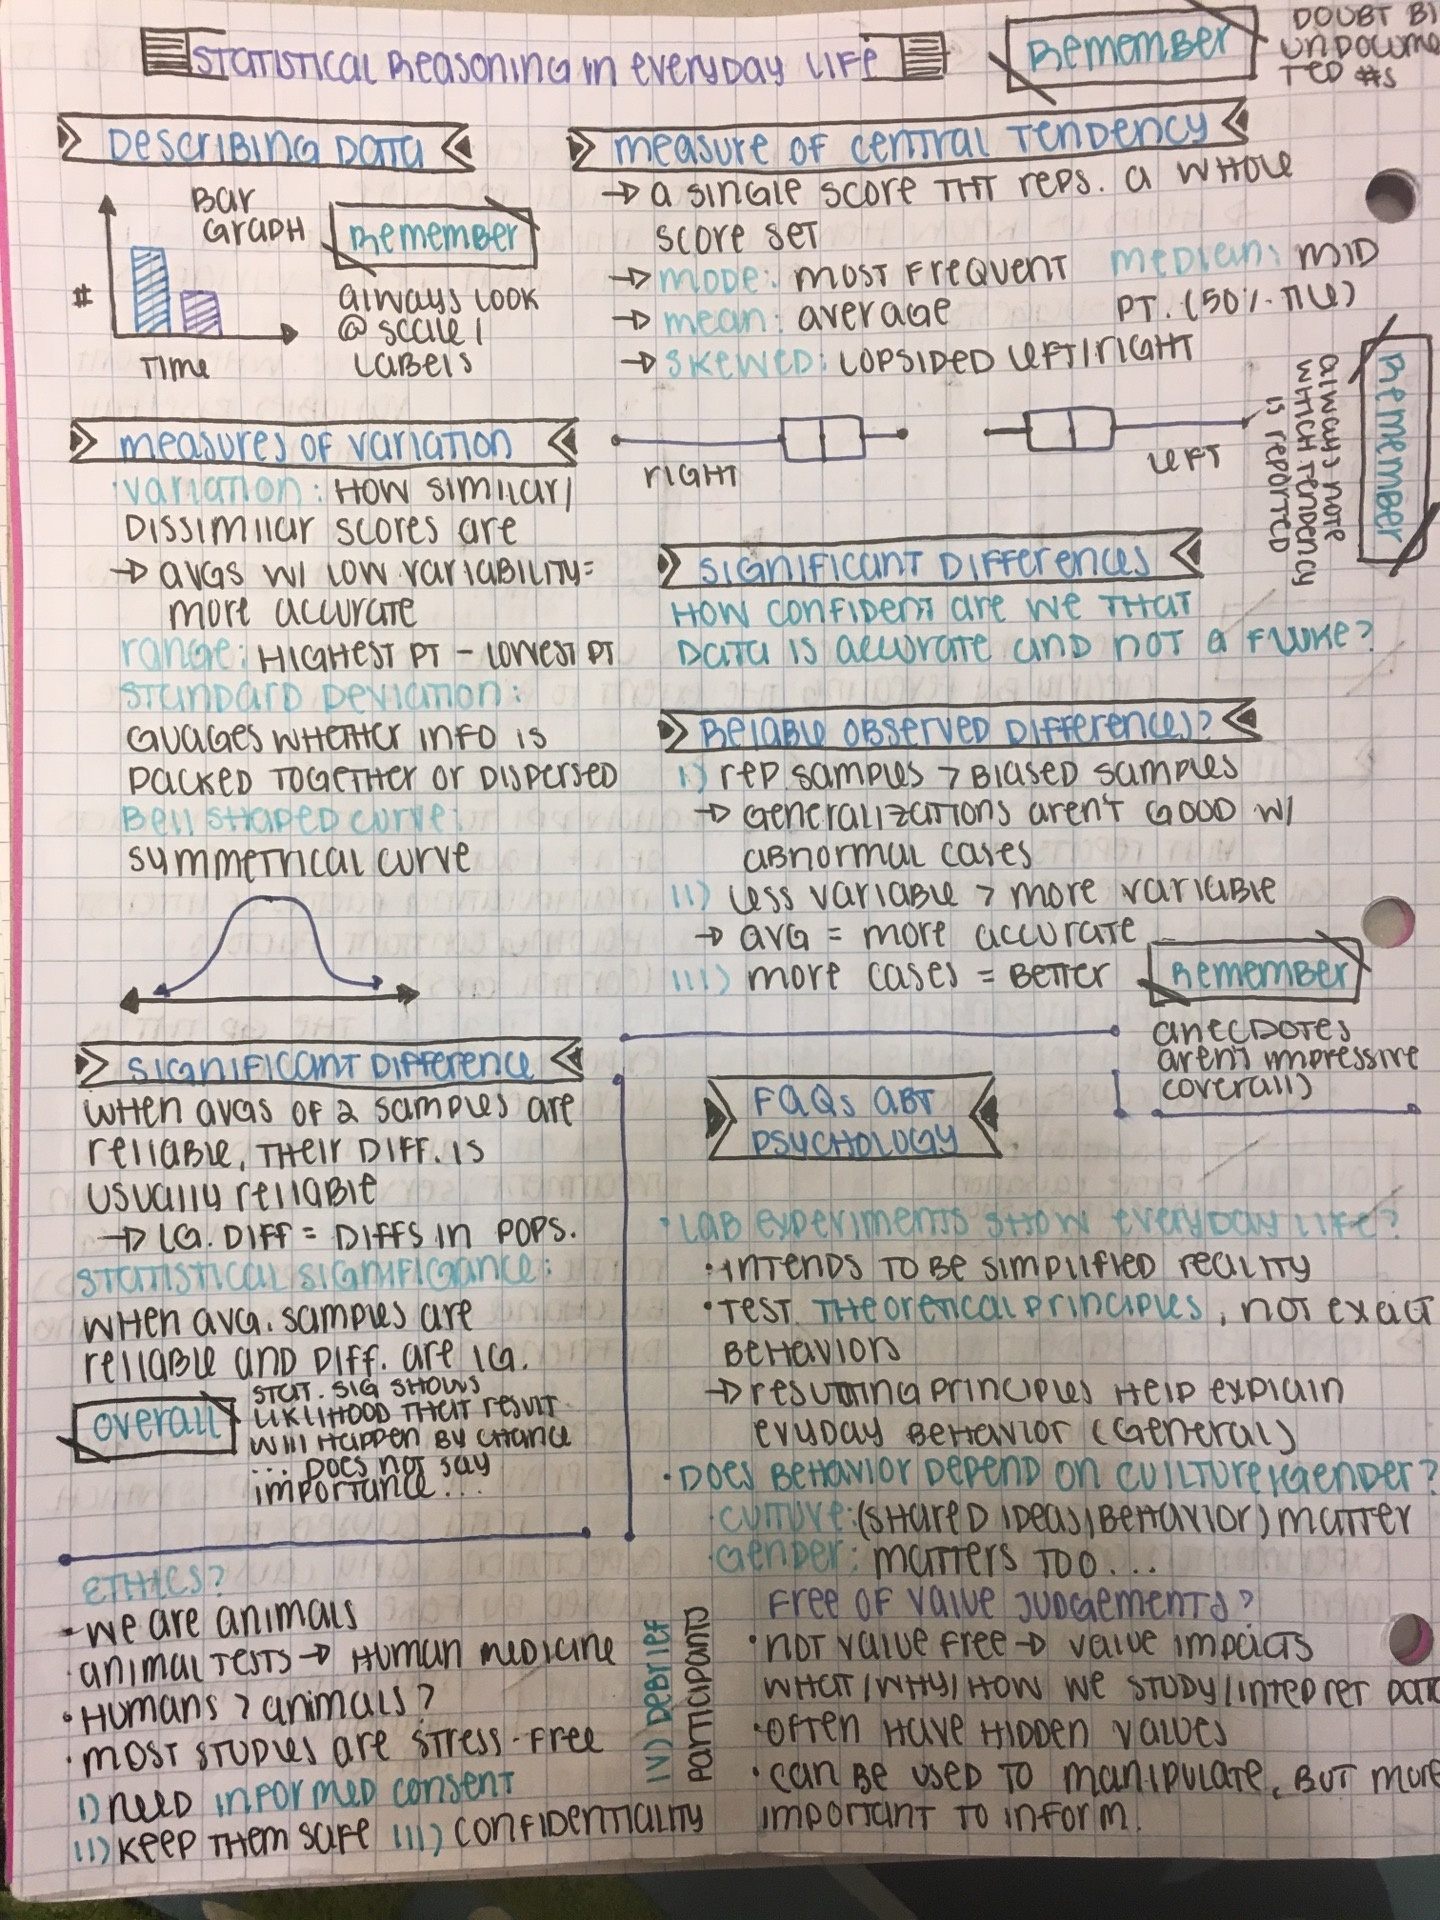 STATISTICAL REASONING IN EVERYDAY LIFE
REMEMBER
DOUBT BI
UNDOCUME
TED #S
DESCRIBING DATA
BAR
GRAPH
#
TIME
REMEMBER
ALWAYS LOOK
@ SCALE/
LABELS
MEASURE OF CENTRAL TENDENCY
→ A SINGLE SCORE THT REPS. A WHOLE
SCORE SET
→ MODE: MOST FREQUENT
MEDIAN: MID
PT. (50%-TILE)
→ MEAN: AVERAGE
→ SKEWED: LOPSIDED LEFT/RIGHT
RIGHT
LEFT
REMEMBER
ALWAYS NOTE
WHICH TENDENCY
IS REPORTED
MEASURES OF VARIATION
VARIATION: HOW SIMILAR/
DISSIMILAR SCORES ARE
→ AVGS W/ LOW VARIABILITY=
MORE ACCURATE
RANGE: HIGHEST PT - LOWEST PT
STANDARD DEVIATION:
GUAGES WHETHER INFO IS
PACKED TOGETHER OR DISPERSED
BELL SHAPED CURVE:
SYMMETRICAL CURVE
SIGNIFICANT DIFFERENCES
HOW CONFIDENT ARE WE THAT
DATA IS ACCURATE AND NOT A FLUKE?
RELABLE OBSERVED DIFFERENCES?
I) REP SAMPLES > BIASED SAMPLES
→ GENERALIZATIONS AREN'T GOOD W/
ABNORMAL CASES
II) LESS VARIABLE > MORE VARIABLE
→ AVG = MORE ACCURATE
III) MORE CASES = BETTER
REMEMBER
ANECDOTES
AREN'T IMPRESSIVE
(OVERALL)
SIGNIFICANT DIFFERENCE
WHEN AVGS OF 2 SAMPLES ARE
RELIABLE, THEIR DIFF. IS
USUALLY RELIABLE
→ LG. DIFF = DIFFS IN POPS.
STATISTICAL SIGNIFICANCE:
WHEN AVG. SAMPLES ARE
RELIABLE AND DIFF. ARE LG.
OVERALL
STAT. SIG SHOWS
LIKLIHOOD THAT RESULT
WILL HAPPEN BY CHANCE
... DOES NOT SAY
IMPORTANCE...
FAQS ABT
PSYCHOLOGY
• LAB EXPERIMENTS SHOW EVERYDAY LIFE?
• INTENDS TO BE SIMPLIFIED REALITY
• TEST THEORETICAL PRINCIPLES, NOT EXACT
BEHAVIORS
→ RESULTING PRINCIPLES HELP EXPLAIN
EVYDAY BEHAVIOR (GENERAL)
• DOES BEHAVIOR DEPEND ON CULTURE & GENDER?
CULTURE: (SHARED IDEAS/BEHAVIOR) MATTER
GENDER: MATTERS TOO...
FREE OF VALUE JUDGEMENTS?
• NOT VALUE FREE → VALUE IMPACTS
WHAT/WHY/HOW WE STUDY/INTERPRET DATA
• OFTEN HAVE HIDDEN VALUES
• CAN BE USED TO MANIPULATE, BUT MORE
IMPORTANT TO INFORM.
ETHICS?
• WE ARE ANIMALS
• ANIMAL TESTS → HUMAN MEDICINE
• HUMANS > ANIMALS?
• MOST STUDIES ARE STRESS-FREE
I) NEED INFORMED CONSENT
II) KEEP THEM SAFE III) CONFIDENTIALITY
IV) DEBRIEF
PARTICIPANTS